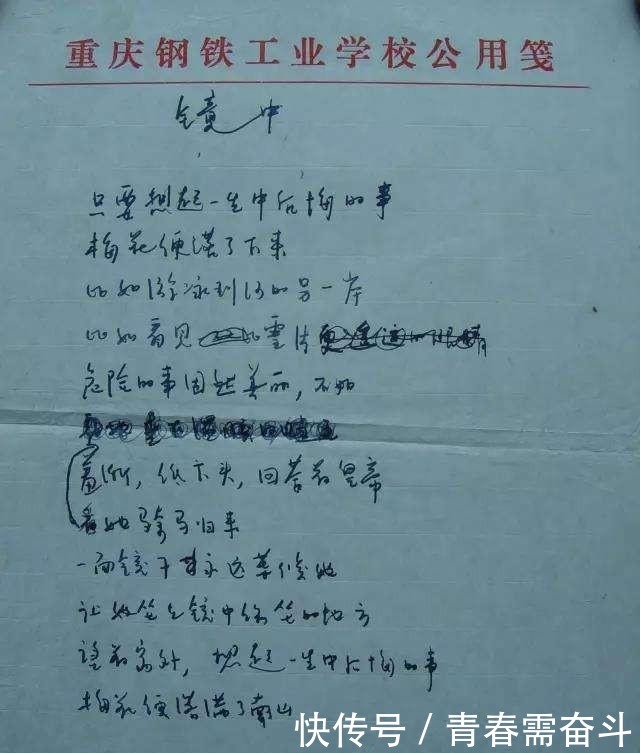 重庆钢铁工业学校公用笺
镜中
只要想起一生中后悔的事
梅花便落了下来
比如游泳到河的另一岸
比如看见比雪片更遥远的眼睛
危险的事固然美丽，不如
羞惭，低下头，回答着皇帝
看她骑马归来
一面镜子永远等候她
让她坐到镜中常坐的地方
望着窗外，想起一生中后悔的事
梅花便落满了南山
快传号/青春需奋斗